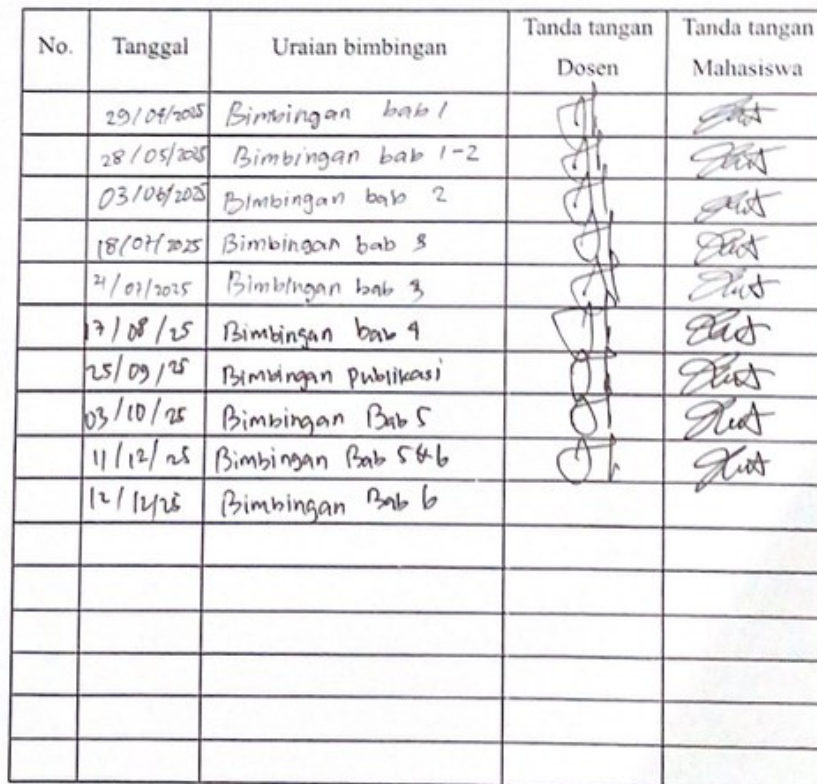 No. Tanggal Uraian bimbingan Tanda tangan Dosen Tanda tangan Mahasiswa
29/04/2025 Bimbingan bab 1
28/05/2025 Bimbingan bab 1-2
03/06/2025 Bimbingan bab 2
18/07/2025 Bimbingan bab 3
21/07/2025 Bimbingan bab 3
17/08/25 Bimbingan bab 4
25/09/25 Bimbingan publikasi
03/10/25 Bimbingan Bab 5
11/12/25 Bimbingan Bab 5 & 6
12/12/25 Bimbingan Bab 6